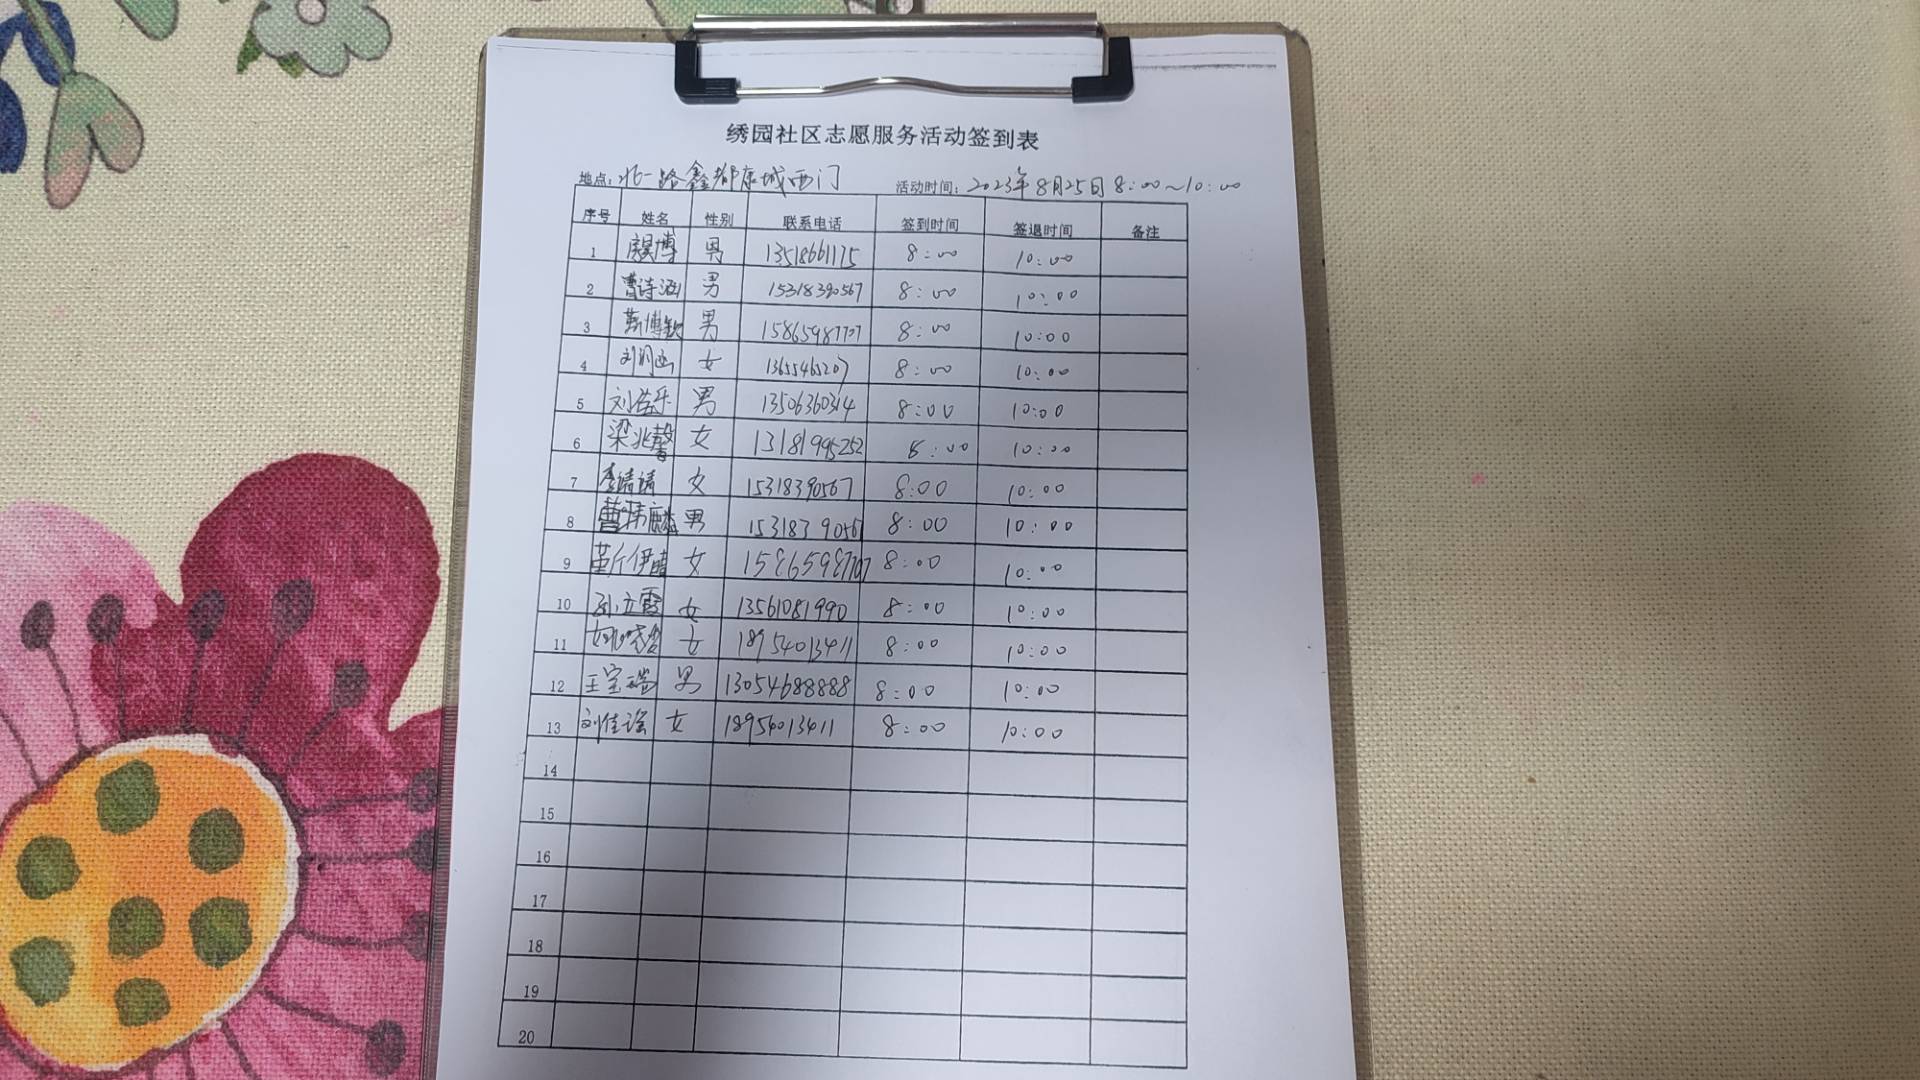 绣园社区志愿服务活动签到表
地点：北一路鑫都康城西门 活动时间：2023年8月25日8:00~10:00
序号 姓名 性别 联系电话 签到时间 签退时间 备注
1 博 男 13518661175 8:00 10:00
2 曹诗涵 男 15318390567 8:00 10:00
3 靳博钦 男 15865987707 8:00 10:00
4 刘 女 13655465207 8:00 10:00
5 刘 乐 男 13506360314 8:00 10:00
6 梁兆馨 女 13181995252 8:00 10:00
7 李靖靖 女 15318390567 8:00 10:00
8 曹 麟 男 15318390567 8:00 10:00
9 靳伊晴 女 15865987707 8:00 10:00
10 孙立霞 女 13561081990 8:00 10:00
11 女 18954013411 8:00 10:00
12 王宝瑞 男 13054688888 8:00 10:00
13 刘佳瑶 女 18954013411 8:00 10:00
14
15
16
17
18
19
20